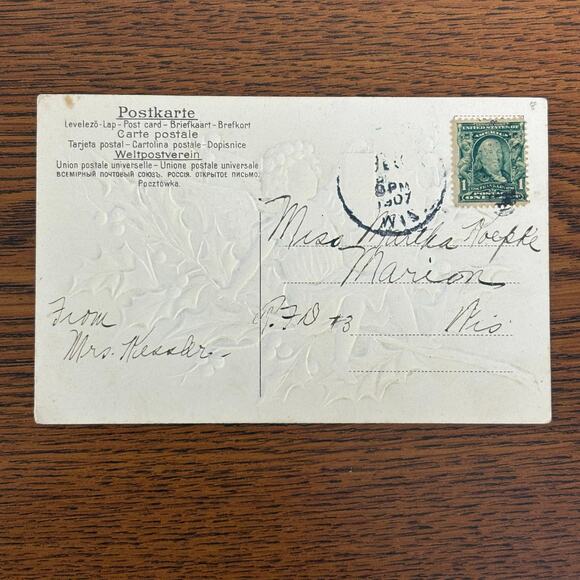 Postkarte
Levelező-Lap - Post card - Briefkaart - Brefkort
Carte postale
Tarjeta postal - Cartolina postale - Dopisnice
Weltpostverein
Union postale universelle - Unione postale universale
ВСЕМІРНЫЙ ПОЧТОВЫЙ СОЮЗЪ. РОССІЯ. ОТКРЫТОЕ ПИСЬМО.
Pocztówka.
6 PM
1907
WIS
UNITED STATES OF AMERICA
1 1
Miss Martha Koepke
Marion
R.F.D #3 Wis.
From
Mrs. Kessler